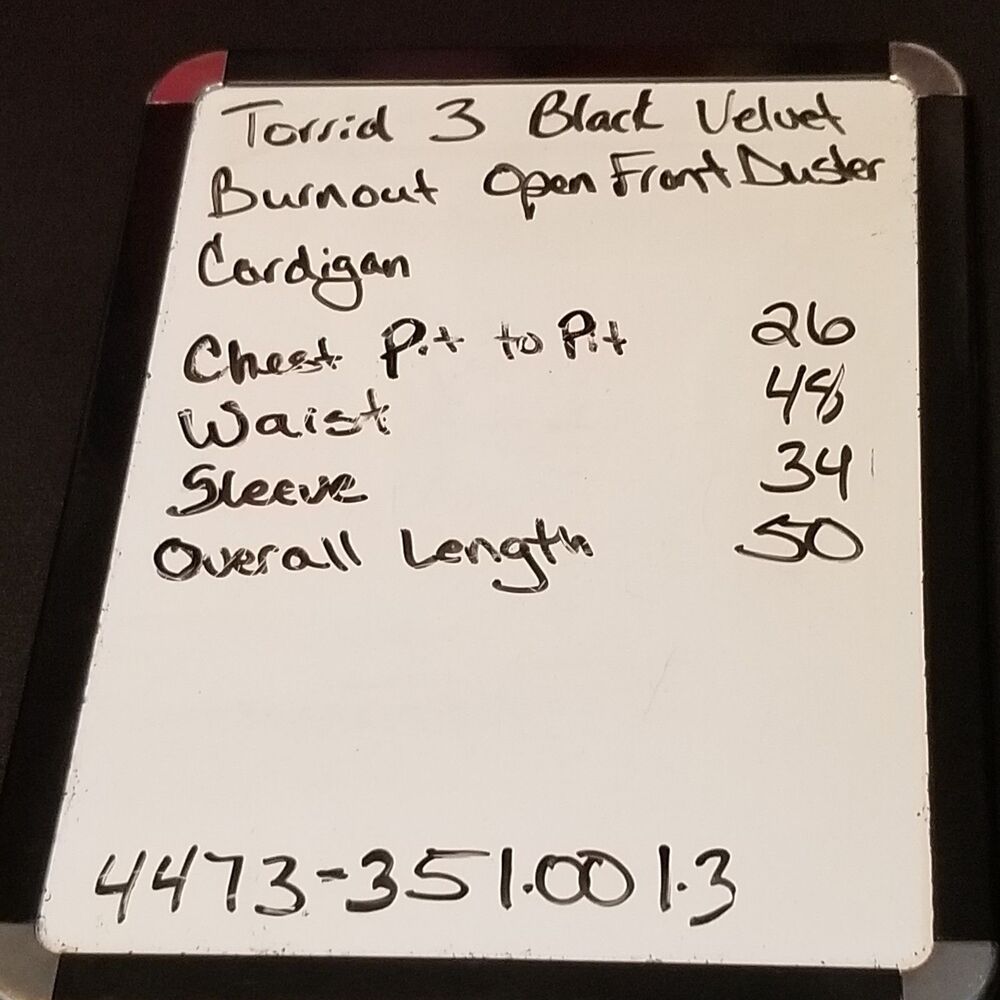 Torrid 3 Black Velvet
Burnout Open Front Duster
Cardigan
Chest Pit to Pit 26
Waist 48
Sleeve 34
Overall Length 50
4473-351.001.3